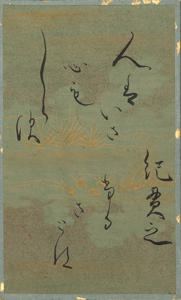 紀貫之
人はいさ
心も
しらす
ふる
さとは